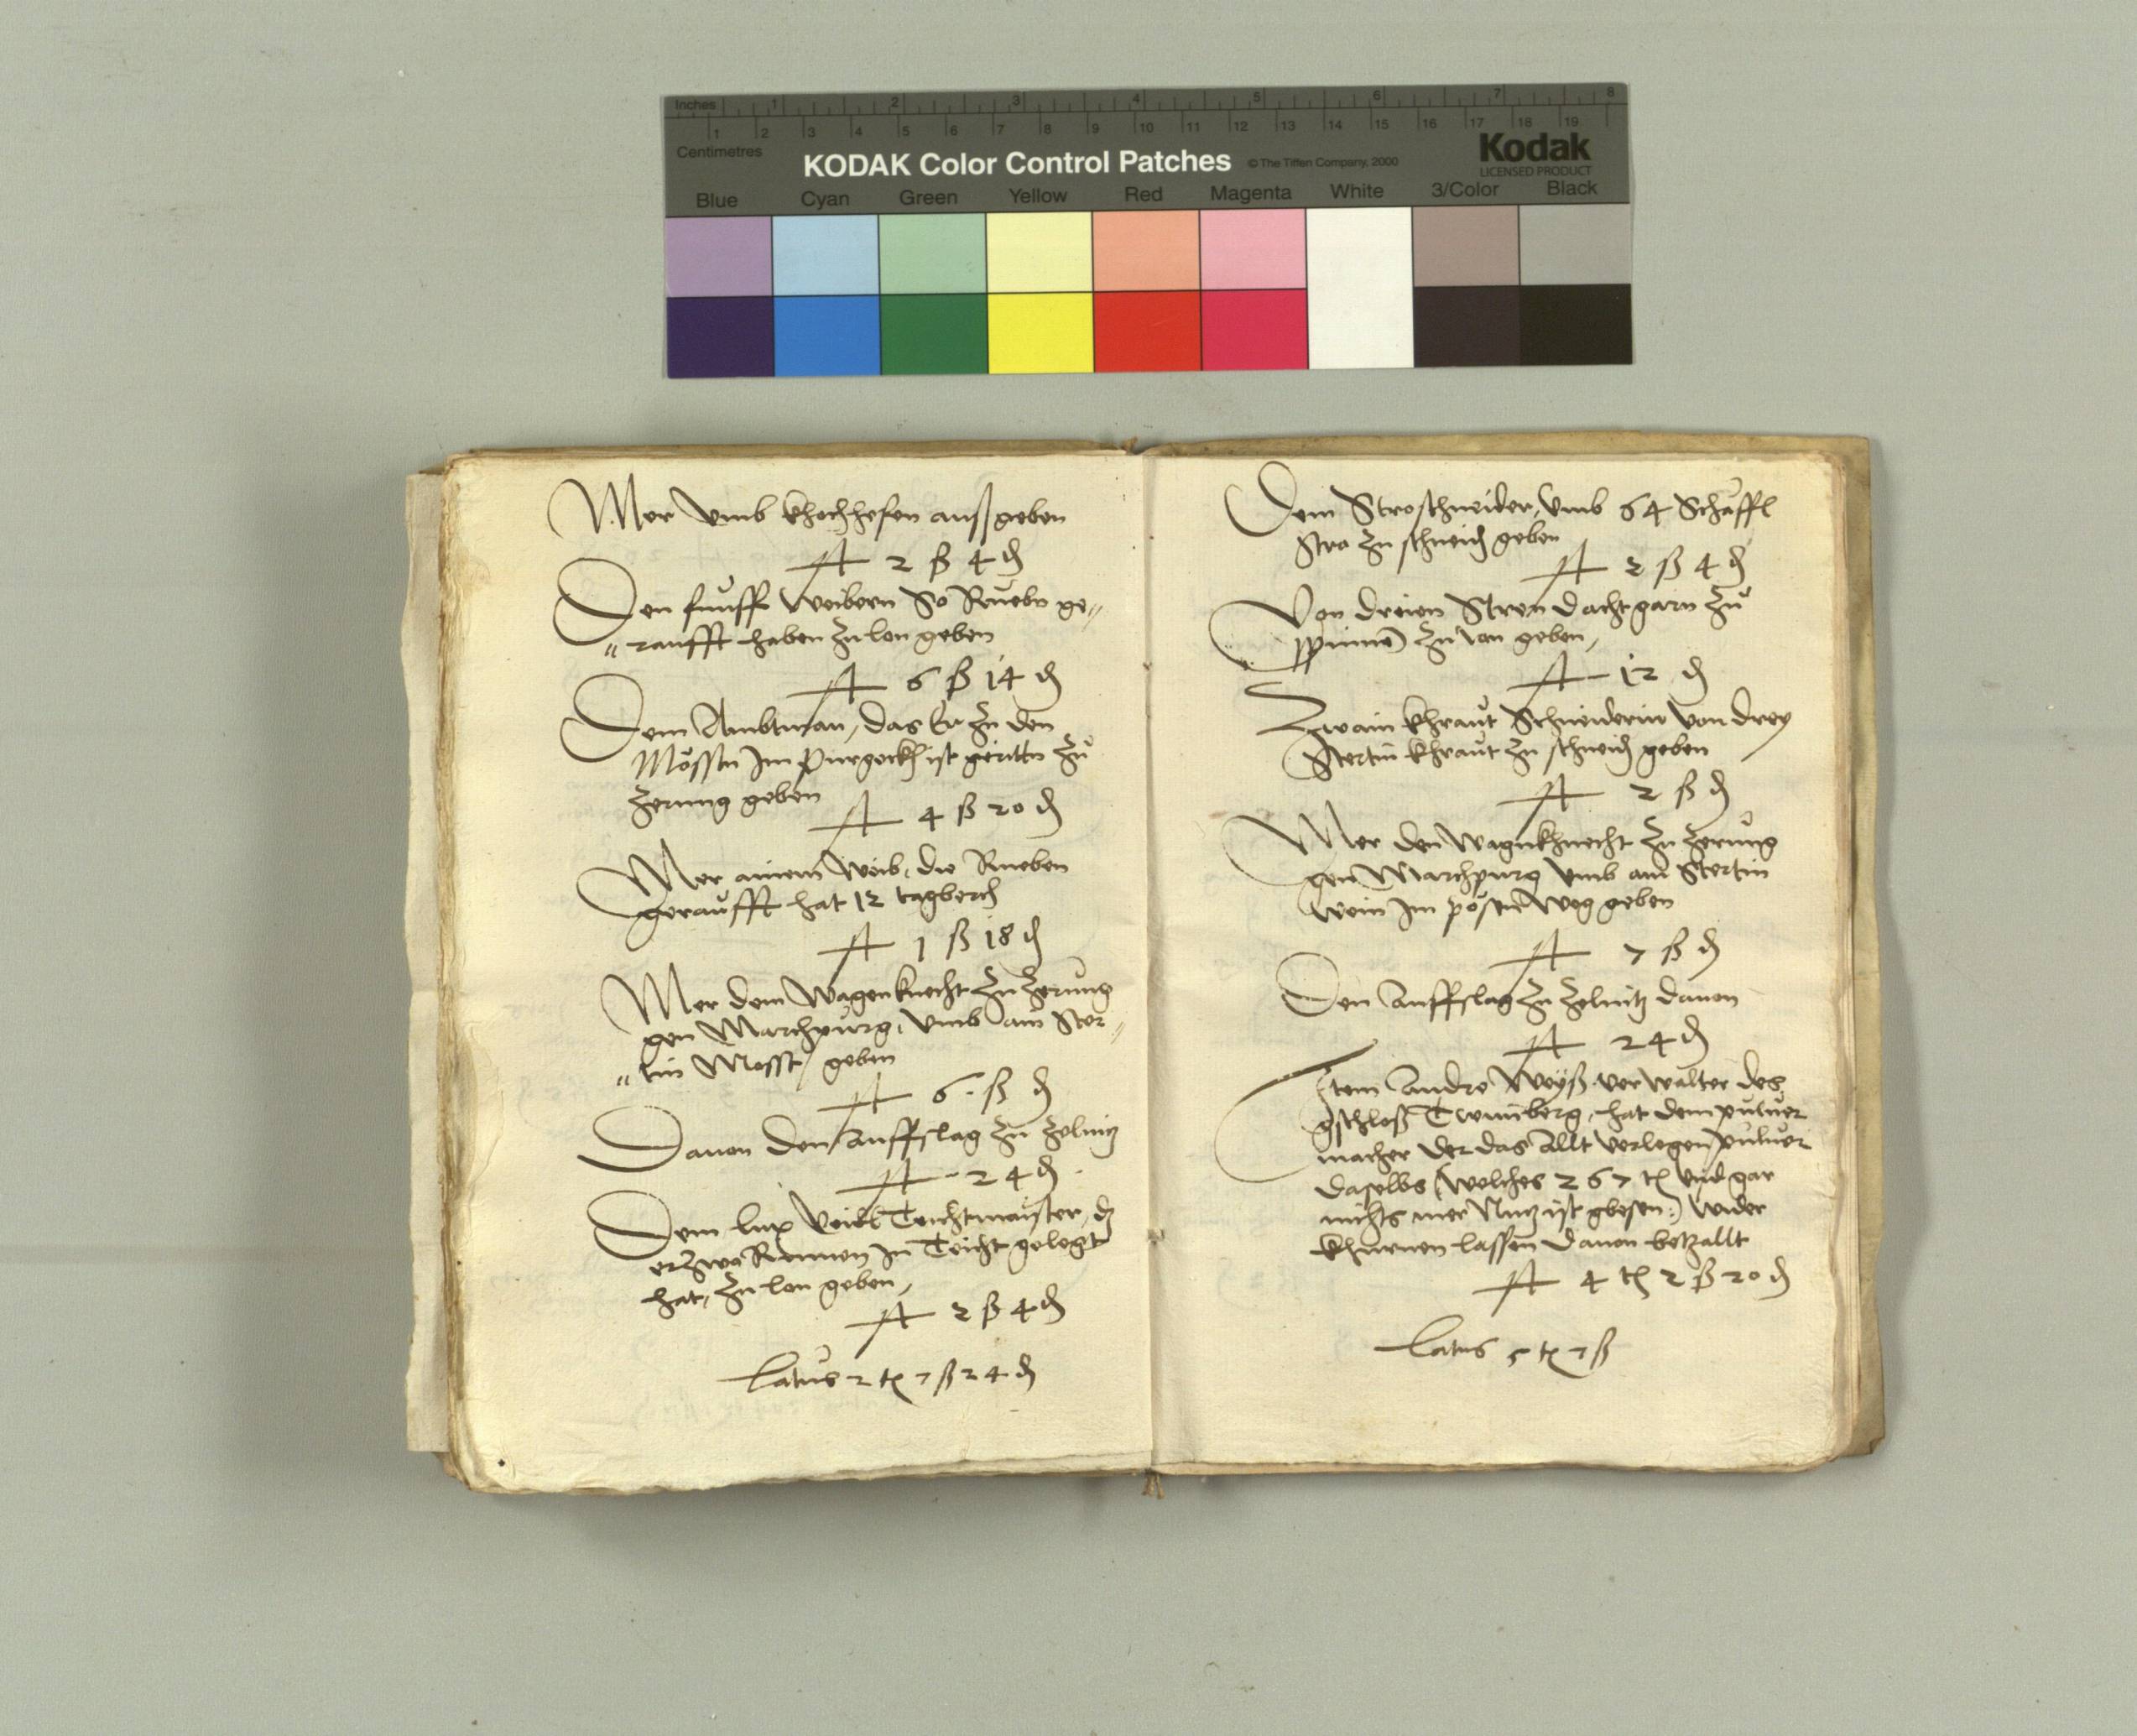 Inches 1 2 3 4 5 6 7 8
1 2 3 4 5 6 7 8 9 10 11 12 13 14 15 16 17 18 19
Centimetres
KODAK Color Control Patches © The Tiffen Company, 2000 Kodak
LICENSED PRODUCT
Blue Cyan Green Yellow Red Magenta White 3/Color Black
Mer vmb khochhefen außgeben
A 2 ß 4 ₰
Den funff Weibern So Rueben ge〃
〃raufft haben zu lon geben
A 6 ß 14 ₰
Dem Ambtman, das Er zu den
Mössen Im Purgeckh ist geritten zu
zerung geben
A 4 ß 20 ₰
Mer ainem Weib, die Rueben
geraufft hat 12 tagberch
A 1 ß 18 ₰
Mer dem Wagenknecht zu zerung
gen Marchpurg, vmb ain Ster〃
〃tin Mosst geben
A 6 ß ₰
Dauon den Auffslag zu zelnitz
A 24 ₰
Dem Lux Veidl Teichtmaister, dz
er zwo Rinnen In Teicht gelegt
hat, zu lon geben,
A 2 ß 4 ₰
Latus 2 ℔ 7 ß 24 ₰
Dem Stroschneider, vmb 64 Schäffl
Stro zu schneid geben
A 2 ß 4 ₰
Von dreien Stren dachtgarn zu
spinnen zu lon geben,
A 12 ₰
Zwain khraut Schneiderin von drey
Stertin khraut zu schneid geben
A 2 ß ₰
Mer den Wagnkhnecht zu zerung
gen Marchpurg vmb ain Stertin
Wein Im pösen Weg geben
A 7 ß ₰
Den Auffslag zu zelnitz dauon
A 24 ₰
Item Andre Weyß verwalter des
gschloß Twimberg, hat dem puluer
macher der das Allt verlegen puluer
daselbs (welches 267 ℔ vnd gar
nichts mer Nutz ist gbesen:) wider
khurnen lassen dauon betzallt
A 4 ℔ 2 ß 20 ₰
Latus 5 ℔ 7 ß